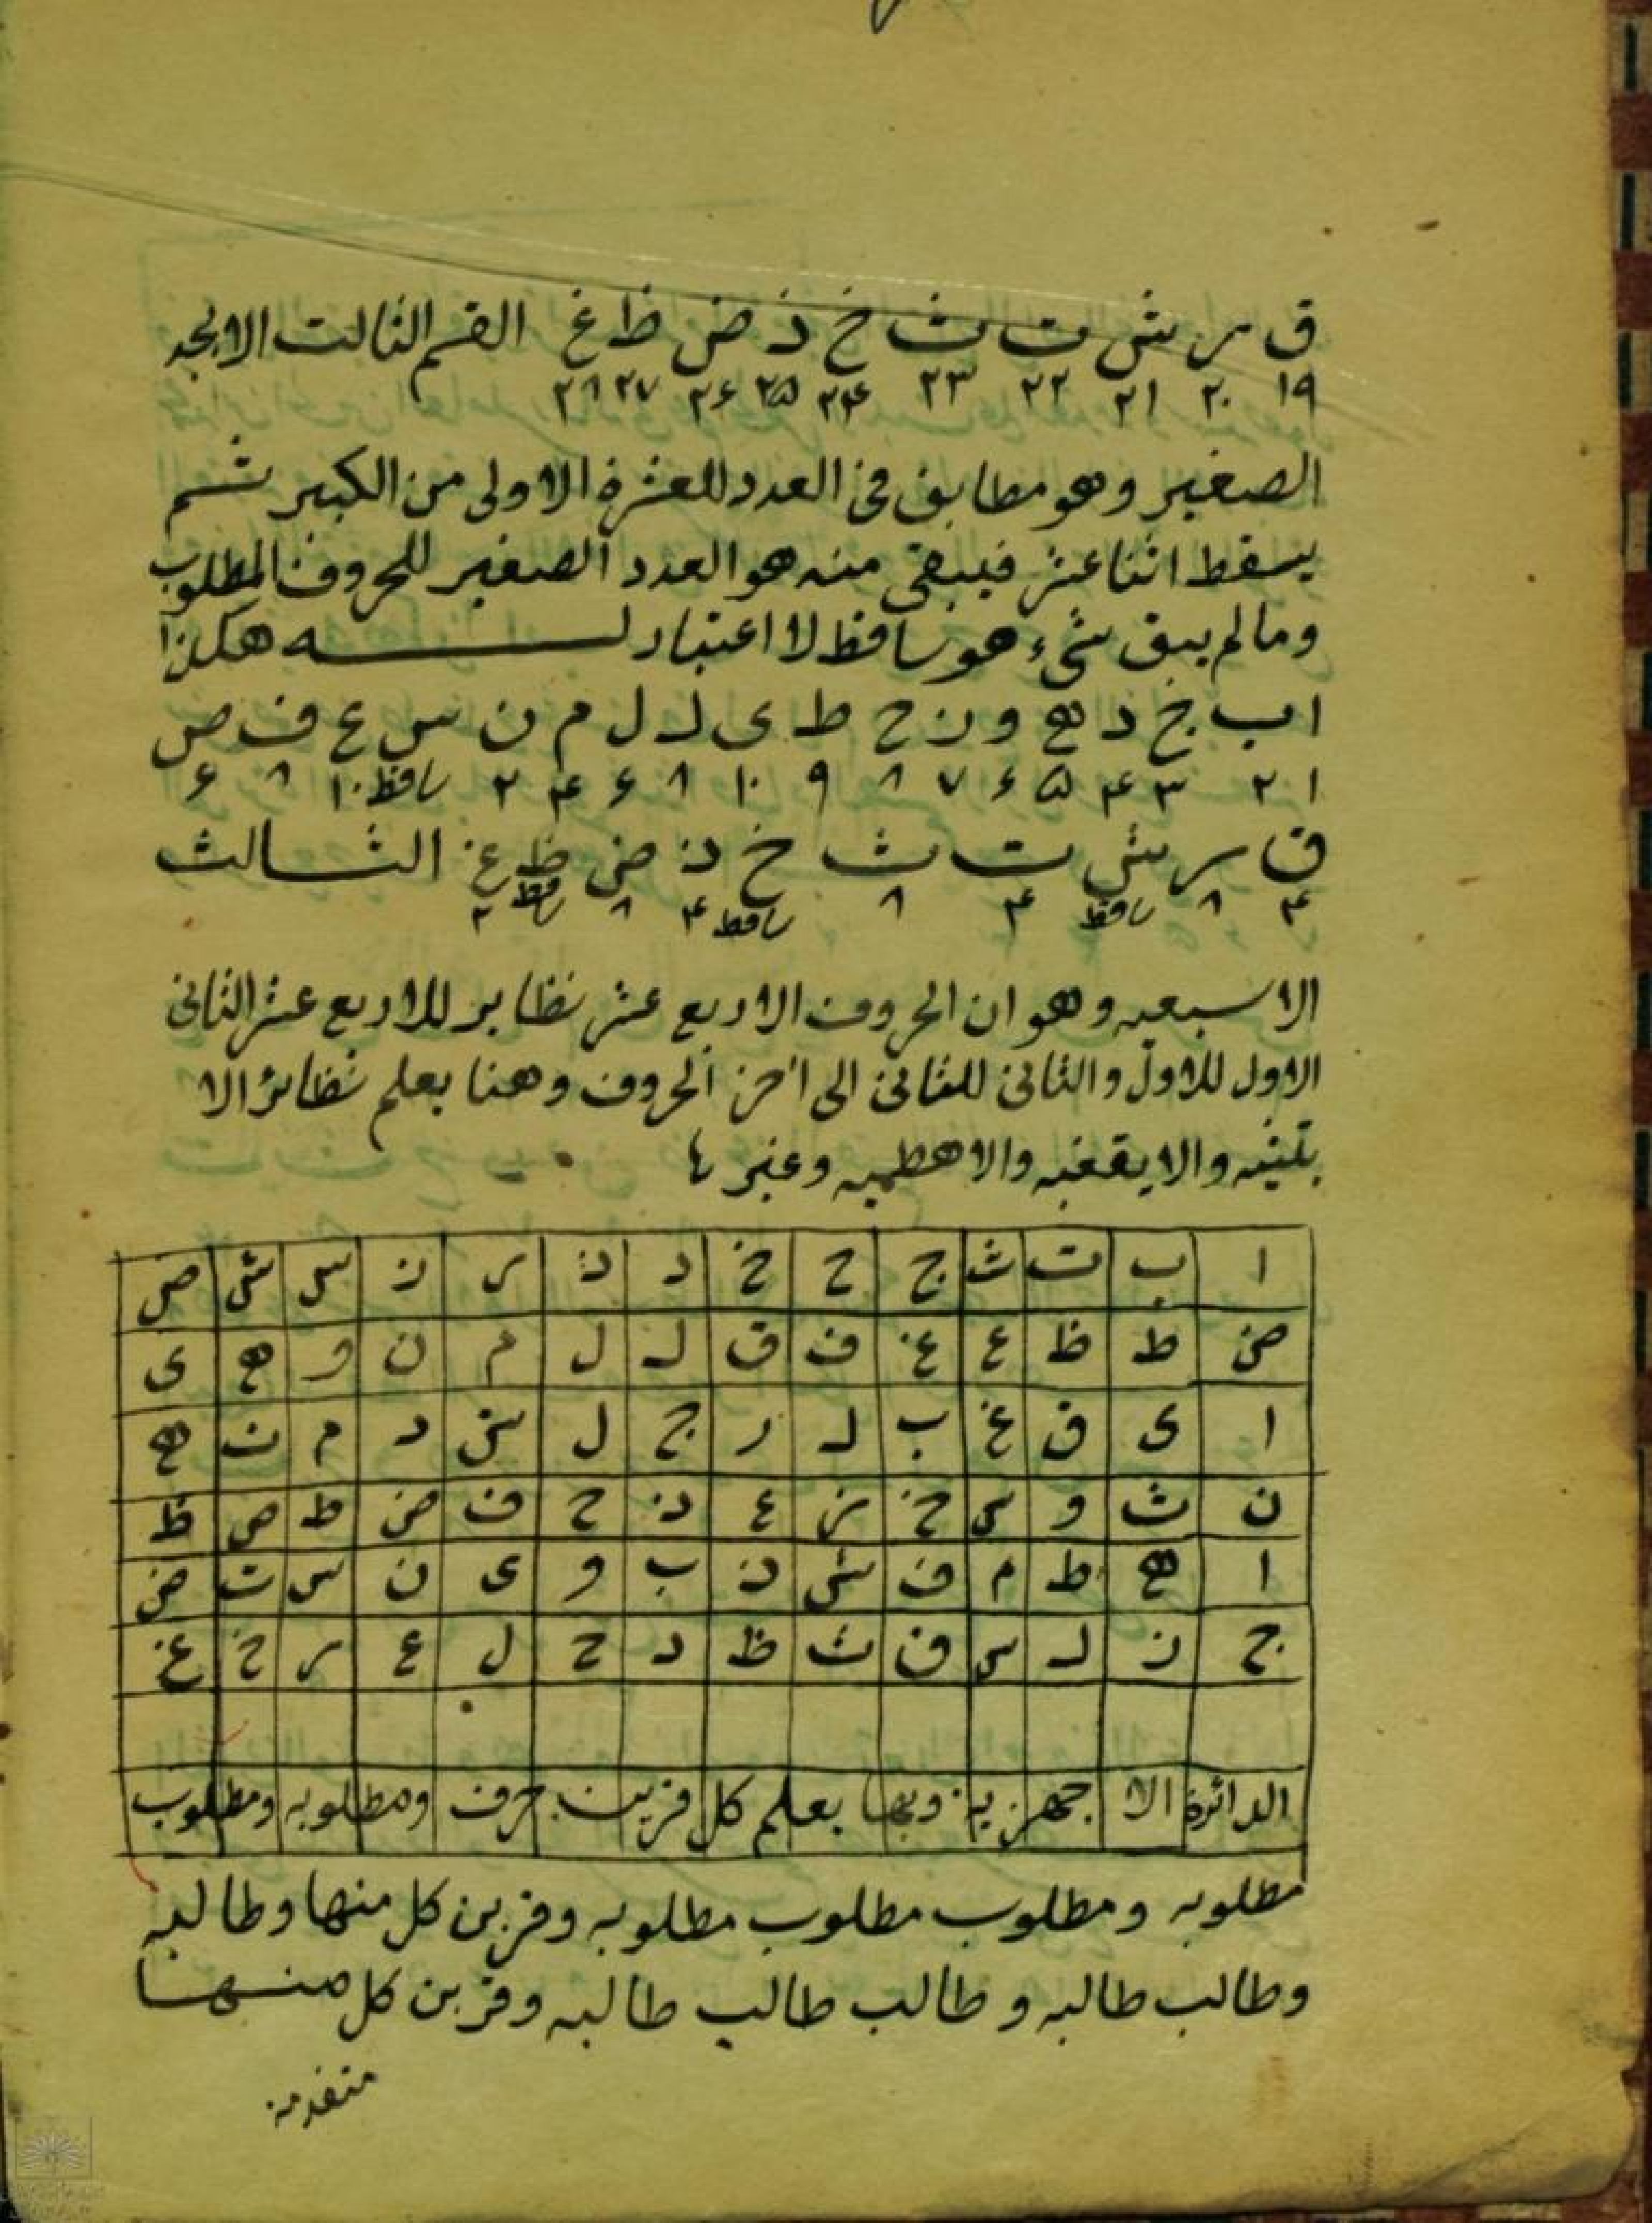 ق ر ش ت ث خ ذ ض ظ غ القسم الثالث الابجد
۱۹ ۲۰ ۲۱ ۲۲ ۲۳ ۲۴ ۲۵ ۲۶ ۲۷ ۲۸
الصغير وهو مطابق فى العدد للعشرة الاولى من الكبير ثم
يسقط اثنا عشر فيبقى منه هو العدد الصغير للحروف المطلوب
وما لم يبق شىء هو ساقط لا اعتبار له هكذا
ا ب ج د ه و ز ح ط ى ك ل م ن س ع ف ص
۱ ۲ ۳ ۴ ۵ ۶ ۷ ۸ ۹ ۱۰ ۸ ۶ ۴ ۲ ساقط ۱۰ ۸ ۶
ق ر ش ت ث خ ذ ض ظ غ الثالث
۴ ۸ ساقط ۴ ۸ ساقط ۴ ۸ ساقط ۲
الاسبعيه وهو ان الحروف الاربع عشر نظاير للاربع عشر الثانى
الاول للاول والثانى للثانى الى اخر الحروف وهنا يعلم نظائر الا
بتثيه والايقغيه والاهطميه وغيرها
ا ب ت ث ج ح خ د ذ ر ز س ش ص
ض ط ظ ع غ ف ق ك ل م ن و ه ى
ا ى ق غ ب ك ر ج ل ش د م ت ه
ن ث و س خ ز ع ذ ح ف ض ط ص ظ
ا ه ط م ف ش ذ ب و ى ن س ت ض
ج ز ك س ق ث ظ د ح ل ع ر خ غ
الدائرة الا جهزيه وبها يعلم كل قرين حرف ومطلوبه ومطلوب
مطلوبه ومطلوب مطلوب مطلوبه وقرين كل منها وطالبه
وطالب طالبه و طالب طالب طالبه وقرين كل منها